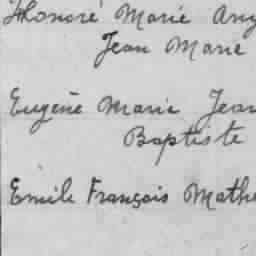 Honoré Marie Ang
Jean Marie
Eugène Marie Jean
Baptiste
Emile François Mathu